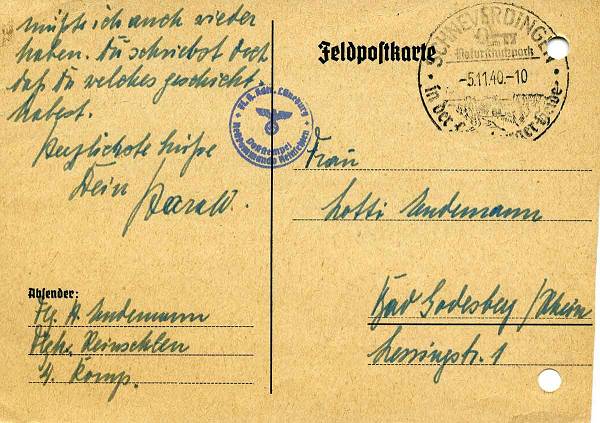 müßte ich auch wieder
haben. Du schriebst doch
daß Du welches geschickt
habest.
Herzlichste Grüße
Dein
Harald.
Absender:
Flg. H. Lindemann
4. Komp.
Feldpostkarte
SCHNEVERDINGEN
Naturschutzpark
-5.11.40.-10
in der Heide
Fl. H. Kdtr. Lüneburg
Dienststempel
Frau
Lotti Lindemann
Bad Godesberg/Rhein
Lessingstr. 1